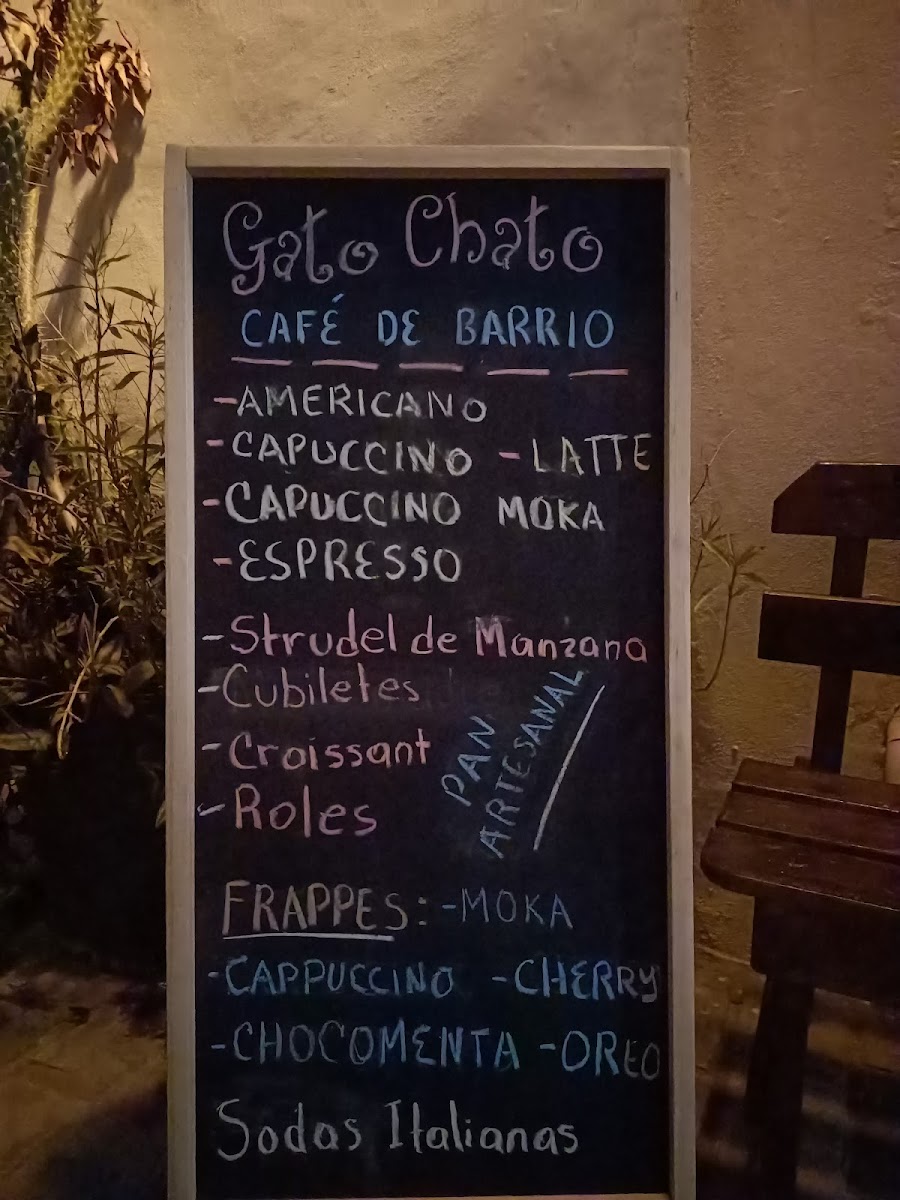 Gato Chato
CAFÉ DE BARRIO
-AMERICANO
-CAPUCCINO -LATTE
-CAPUCCINO MOKA
-ESPRESSO
-Strudel de Manzana
-Cubiletes
-Croissant
-Roles
PAN
ARTESANAL
FRAPPES: -MOKA
-CAPPUCCINO -CHERRY
-CHOCOMENTA -OREO
Sodas Italianas